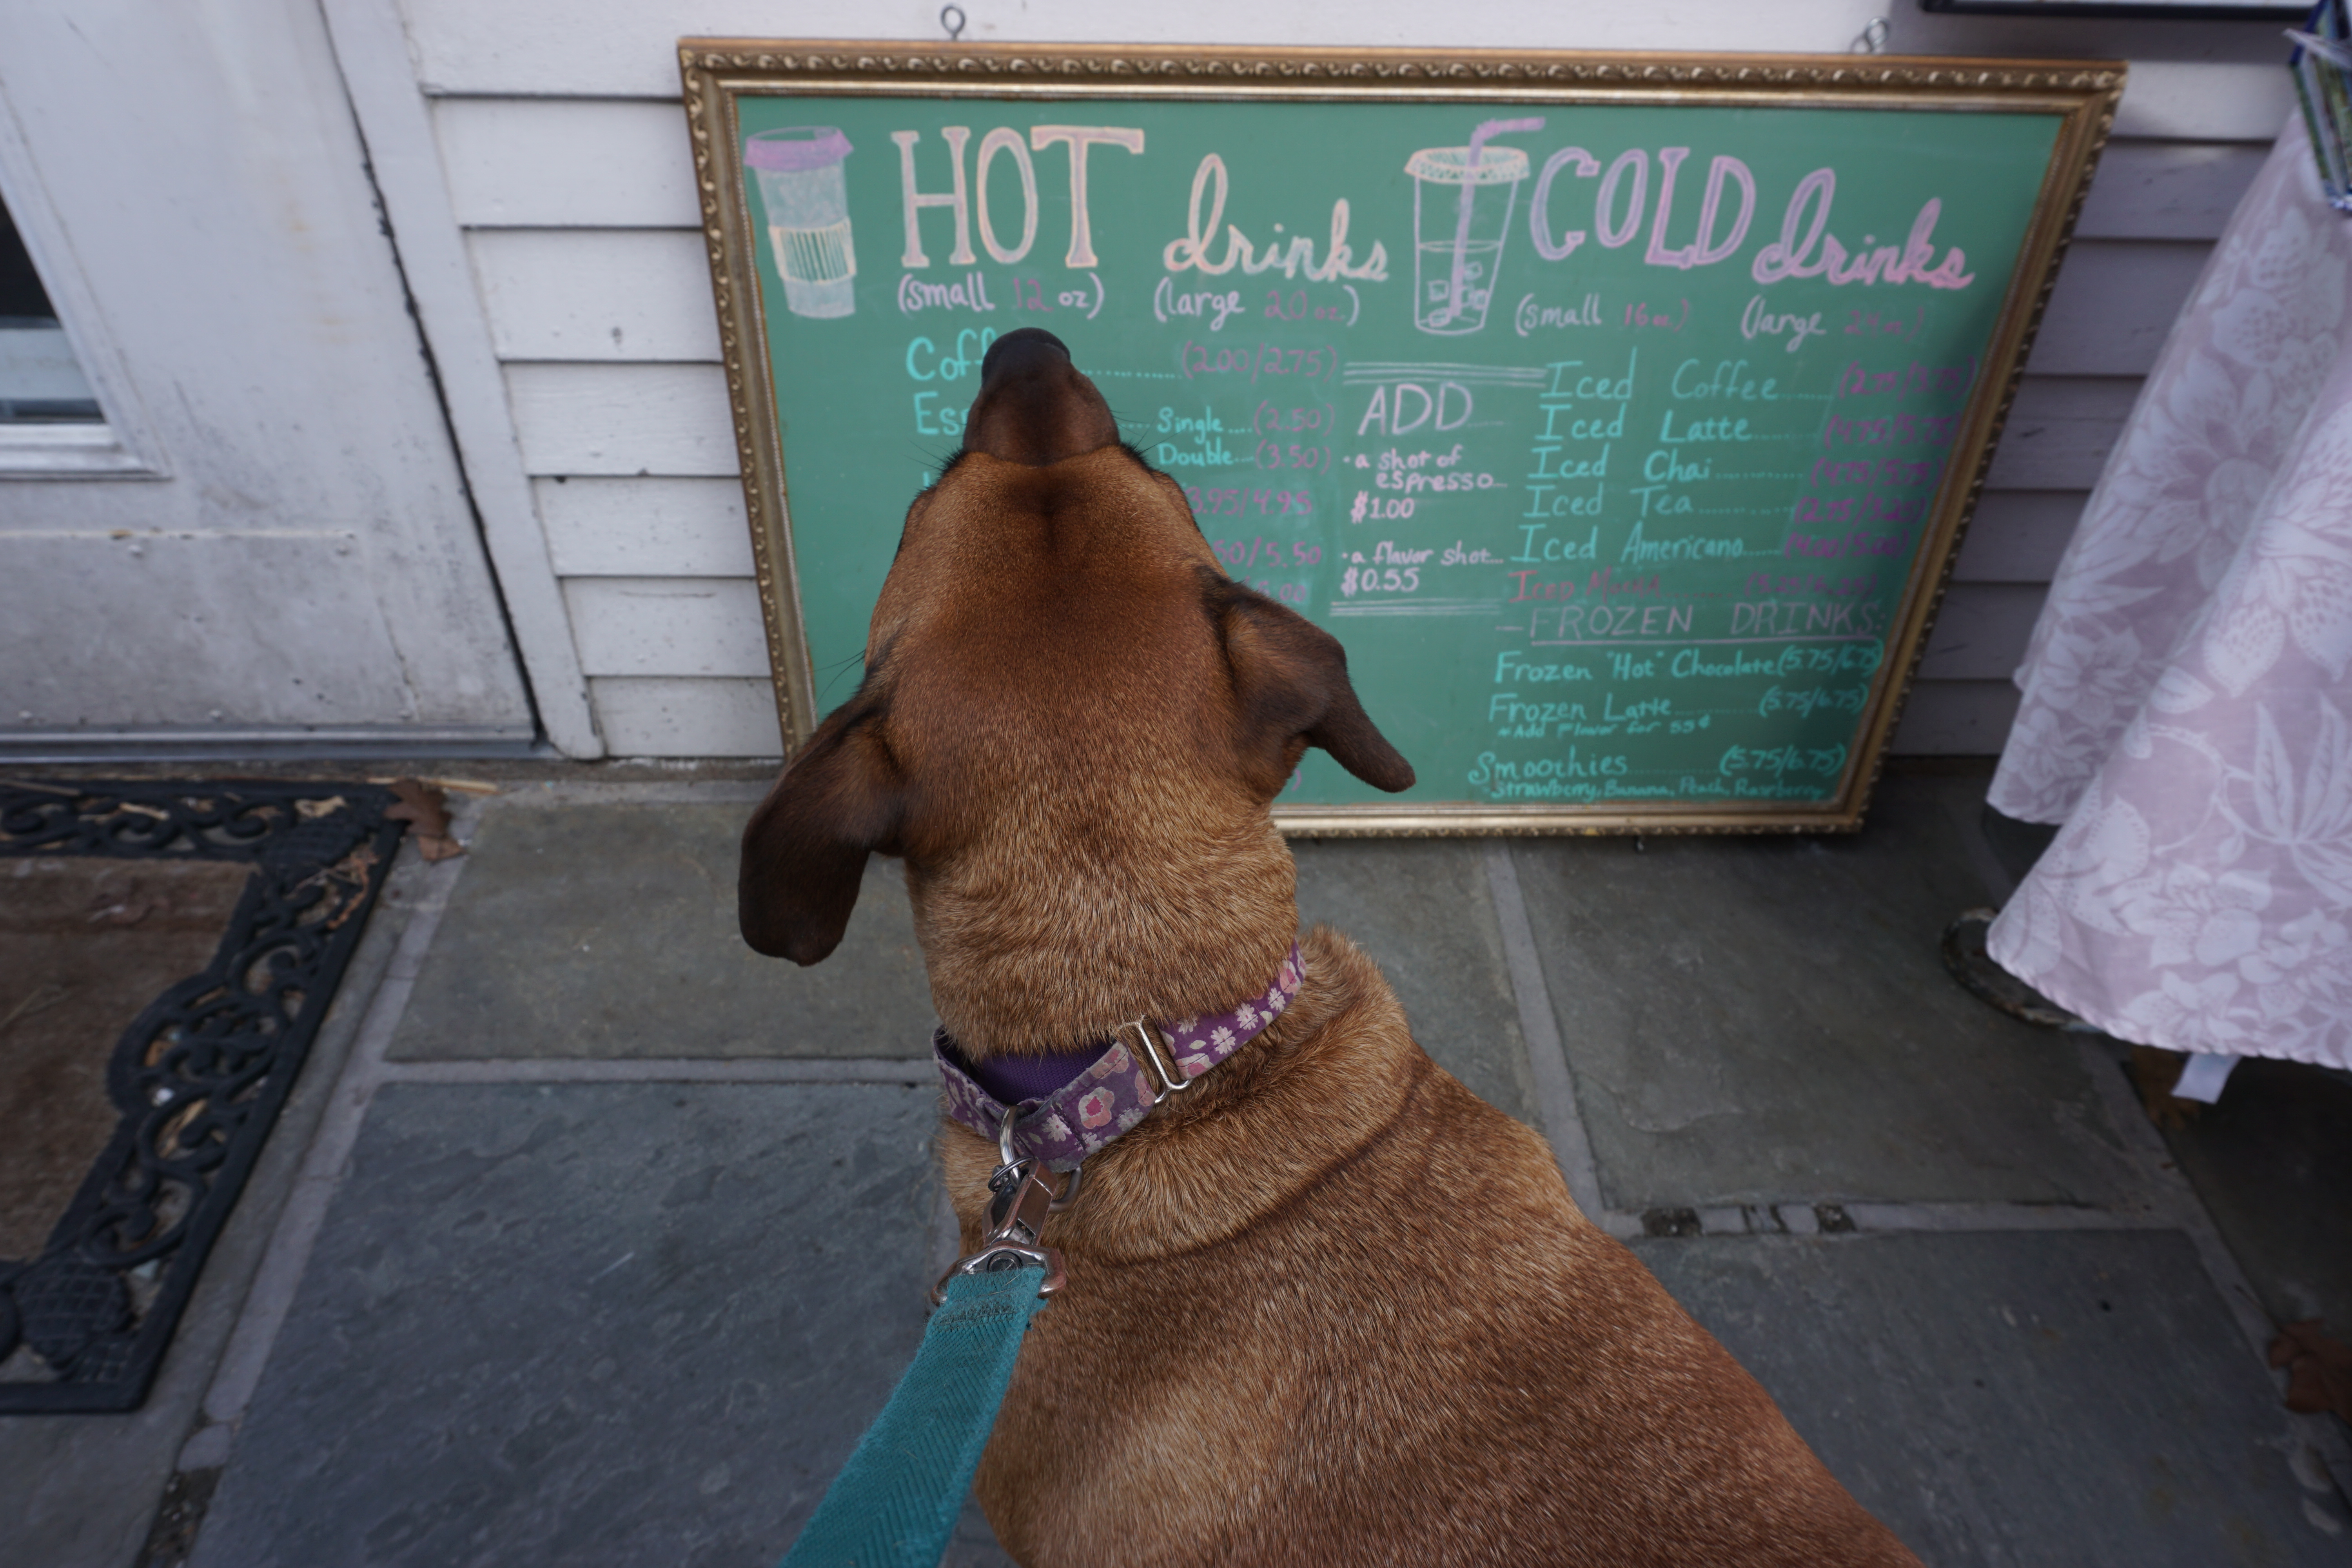 HOT drinks
(small 12 oz) (large 20 oz.)
Coff ............ (2.00/2.75)
Es ... Single .... (2.50)
Double... (3.50)
3.95/4.95
50/5.50
ADD
• a shot of
espresso...
$1.00
• a flavor shot...
$0.55
COLD drinks
(small 16 oz.) (large 24 oz.)
Iced Coffee...... (2.75/3.75)
Iced Latte...... (4.75/5.75)
Iced Chai............ (4.75/5.75)
Iced Tea............ (2.75/3.25)
Iced Americano..... (4.00/5.00)
Iced Mocha ........ (5.25/6.25)
- FROZEN DRINKS:
Frozen "Hot" Chocolate (5.75/6.75)
Frozen Latte............ (5.75/6.75)
~Add Flavor for 55¢
Smoothies............ (5.75/6.75)
-Strawberry, Banana, Peach, Raspberry